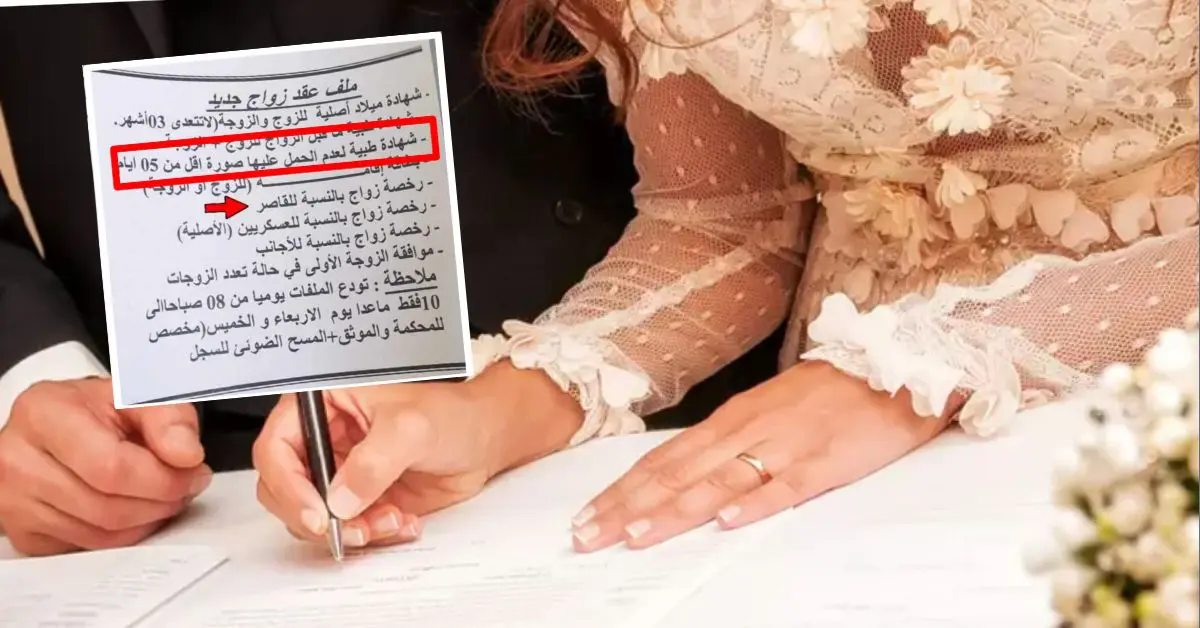 ملف عقد زواج جديد
. شهادة ميلاد أصلية للزوج والزوجة(لاتتعدى 03أشهر.
شهادة طبية ما قبل الزواج للزوج
- شهادة طبية لعدم الحمل عليها صورة اقل من 05 ايام
(للزوج او الزوجة)
- رخصة زواج بالنسبة للقاصر
- رخصة زواج بالنسبة للعسكريين (الأصلية)
- رخصة زواج بالنسبة للأجانب
- موافقة الزوجة الأولى في حالة تعدد الزوجات
ملاحظة : تودع الملفات يوميا من 08 صباحاالى
10فقط ماعدا يوم الاربعاء و الخميس(مخصص
للمحكمة والموثق+المسح الضوئ للسجل